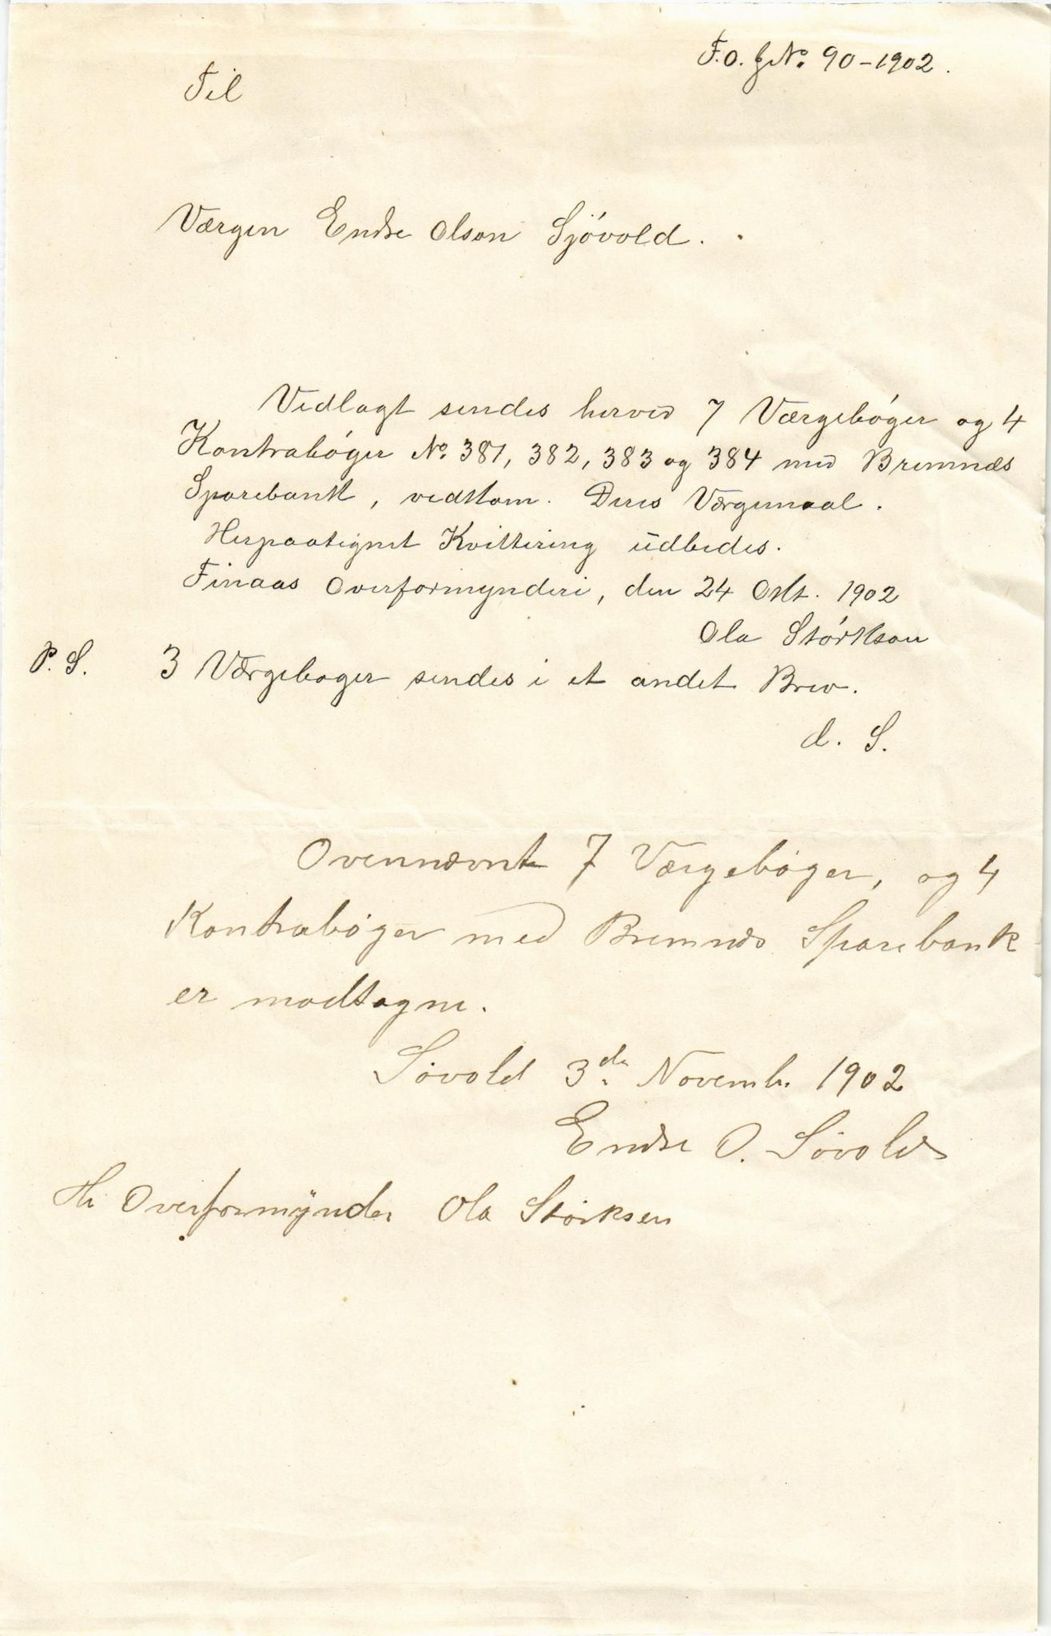 F.O. J.No. 90-1902.
Til
Værgen Endre Olson Sjövold.
Vedlagt sendes herved 7 Værgebóger og 4
Kontrabóger No. 381, 382, 383 og 384 med Bremnæs
Sparebank, vedkom. Deres Værgemaal.
Herpaategnet Kvittering udbedes.
Finaas Overformynderi, den 24 Okt. 1902
Ola Stórkson
P. S. 3 Værgebøger sendes i et andet Brev.
d. S.
Ovennævnte 7 Værgebøger, og 4
Kontrabøger med Bremnæs Sparebank
er modtagne.
Søvold 3de Novemb. 1902
Endre O. Søvold
Hr Overformynder Ola Størksen